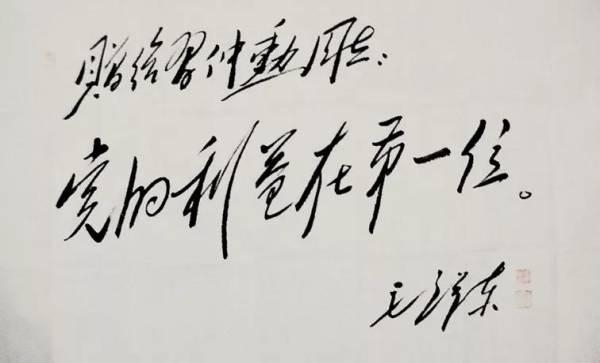 赠给习仲勋同志：
党的利益在第一位。
毛泽东